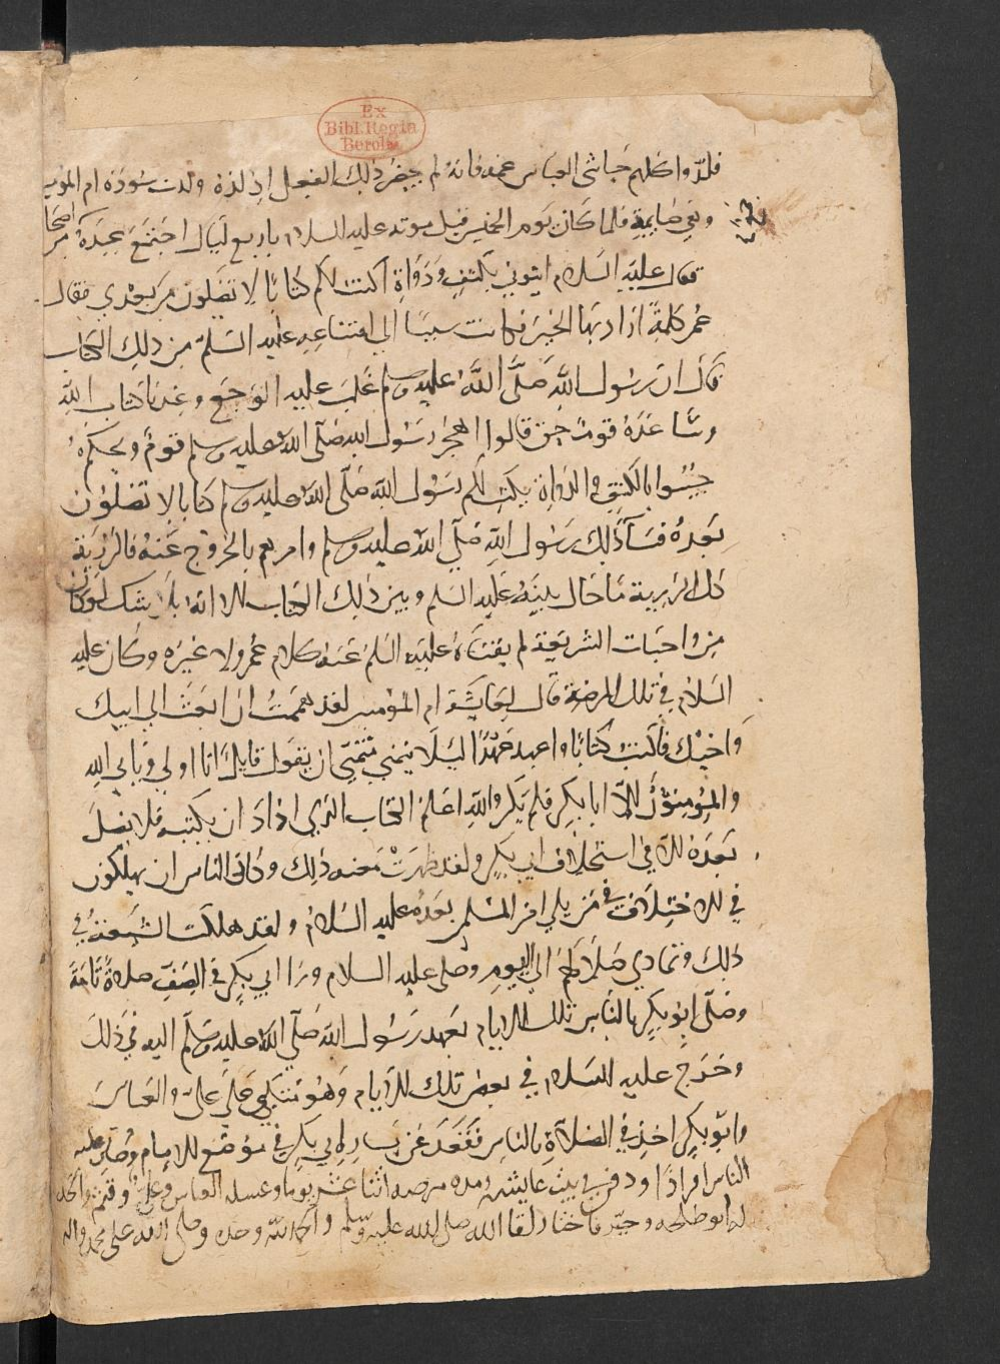 Ex
Bibl. Regia
Berolin.
فلدوا كلهم حاشى العباس عمه فانه لم يحضر ذلك الفعل اذ لدوه ولدت سودة ام المؤمنين
وهي صايمة فلما كان يوم الخميس قبل موته عليه السلام باربع ليال اجتمع عنده
فقال عليه السلام ايتوني بكتف ودواة اكتب لكم كتابا لا تضلون من بعدي فقال
عمر كلمة اراد بها الخير فكانت سببا الي امتناعه عليه السلم من ذلك الكتاب
قال ان رسول الله صلى الله عليه وسلم غلب عليه الوجع وعندنا كتاب الله
وساعده قوم حتى قالوا اهجر رسول الله صلى الله عليه وسلم قوم
جيبوا بالكتف والدواة يكتب لكم رسول الله صلى الله عليه وسلم كتابا لا تضلون
بعده فسآ ذلك رسول الله صلى الله عليه وسلم وامرهم بالخروج عنه فالرزية
كل الرزية ما حال بينه عليه السلم وبين ذلك الكتاب الا انه بلا شك لو كان
من واجبات الشريعة لم يثنه عليه السلم عنه كلام عمر ولا غيره وكان عليه
السلام في تلك المرضة قال لعايشة ام المؤمنين لقد هممت ان ابعث الي ابيك
واخيك فاكتب كتابا واعهد عهدا ليلا يتمني متمني ان يقول قايل انا اولي ويابى الله
والمؤمنون الا ابا بكر فلم يكن والله اعلم الكتاب الذي اراد ان يكتبه فلا يضل
بعده الا في استخلاف ابي بكر ولقد ظهرت من ذلك وكاد الناس ان يهلكون
في الاختلاف في من يلي امر المسلمين بعده عليه السلام ولقد هلكت الشيعة في
ذلك وتمادي ضلالهم الي اليوم وصلى عليه السلام ورا ابي بكر في الصف صلاة تامة
وصلى ابو بكر بالناس تلك الايام بعهد رسول الله صلى الله عليه وسلم اليه في ذلك
وخرج عليه السلام في بعض تلك الايام وهو متكي على علي والعباس
وابو بكر اخذ في الصلاة بالناس فقعد عن يسار ابي بكر في موضع الامام وصلى عليه
الناس افرادا ودفن في بيت عايشه ومدة مرضه اثنا عشر يوما وغسله العباس وعلي وقثم
ابو طلحه وخير فاختار لقا الله صلى الله عليه وسلم والحمد لله وحده وصلى الله على محمد واله